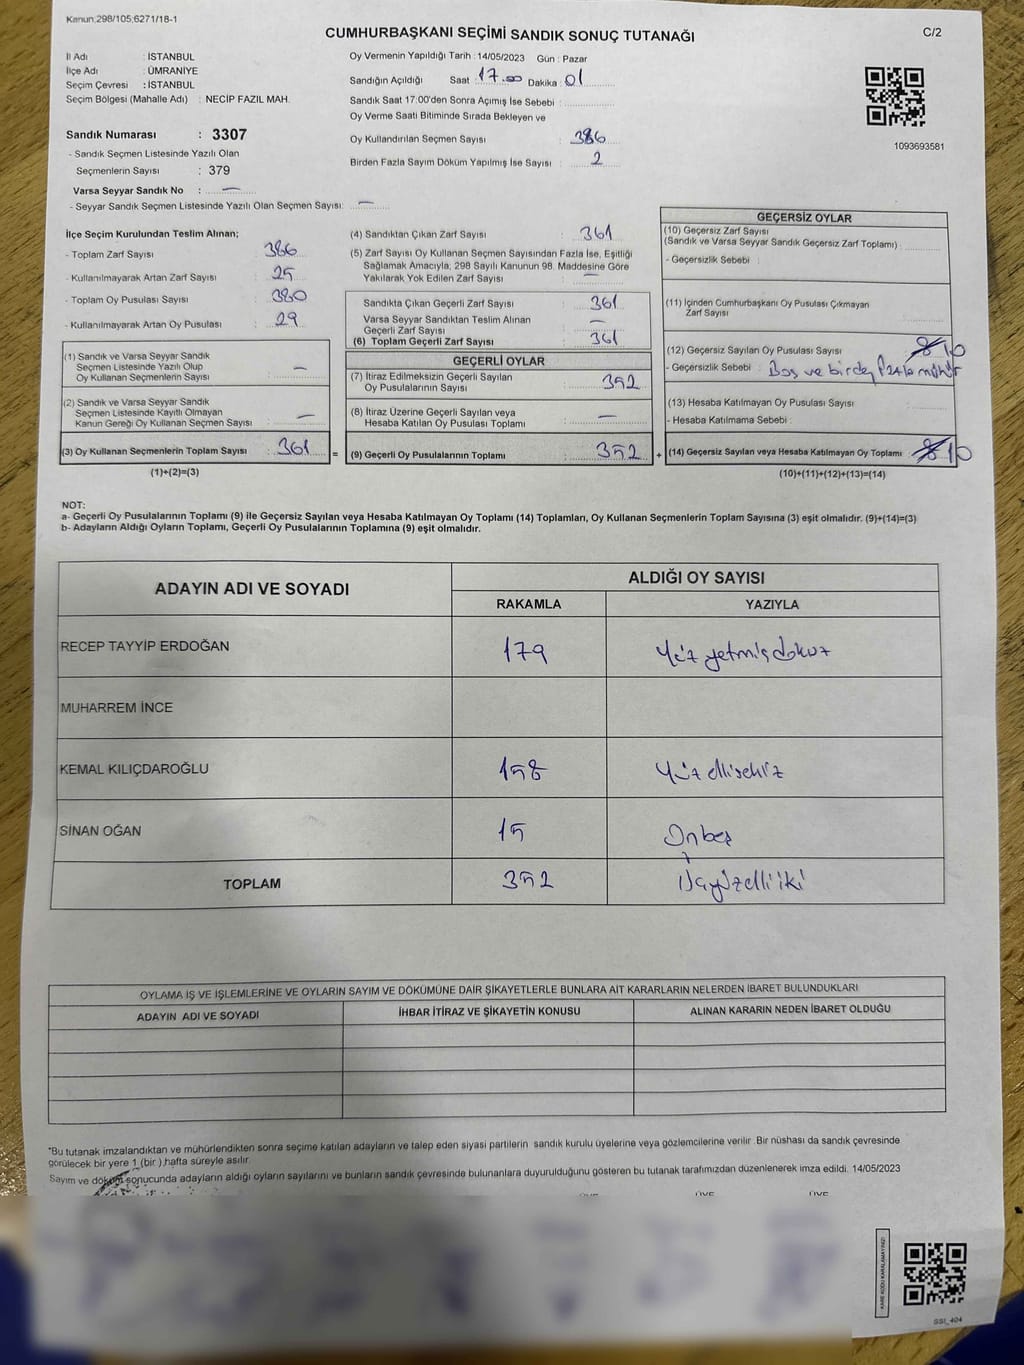 Kanun;298/105;6271/18-1
CUMHURBAŞKANI SEÇİMİ SANDIK SONUÇ TUTANAĞI
C/2
İl Adı : İSTANBUL
İlçe Adı : ÜMRANİYE
Seçim Çevresi : İSTANBUL
Seçim Bölgesi (Mahalle Adı) : NECİP FAZIL MAH.
Sandık Numarası : 3307
- Sandık Seçmen Listesinde Yazılı Olan
Seçmenlerin Sayısı : 379
Varsa Seyyar Sandık No : —
- Seyyar Sandık Seçmen Listesinde Yazılı Olan Seçmen Sayısı: —
Oy Vermenin Yapıldığı Tarih : 14/05/2023 Gün : Pazar
Sandığın Açıldığı Saat : 17.00 Dakika : 01
Sandık Saat 17:00'den Sonra Açımış İse Sebebi :
Oy Verme Saati Bitiminde Sırada Bekleyen ve
Oy Kullandırılan Seçmen Sayısı : 386
Birden Fazla Sayım Döküm Yapılmış İse Sayısı : 2
1093693581
İlçe Seçim Kurulundan Teslim Alınan;
- Toplam Zarf Sayısı : 386
- Kullanılmayarak Artan Zarf Sayısı : 25
- Toplam Oy Pusulası Sayısı : 380
- Kullanılmayarak Artan Oy Pusulası : 29
(1) Sandık ve Varsa Seyyar Sandık
Seçmen Listesinde Yazılı Olup
Oy Kullanan Seçmenlerin Sayısı : —
(2) Sandık ve Varsa Seyyar Sandık
Seçmen Listesinde Kayıtlı Olmayan
Kanun Gereği Oy Kullanan Seçmen Sayısı : —
(3) Oy Kullanan Seçmenlerin Toplam Sayısı : 361 =
(1)+(2)=(3)
(4) Sandıktan Çıkan Zarf Sayısı : 361
(5) Zarf Sayısı Oy Kullanan Seçmen Sayısından Fazla İse, Eşitliği
Sağlamak Amacıyla, 298 Sayılı Kanunun 98. Maddesine Göre
Yakılarak Yok Edilen Zarf Sayısı : —
Sandıkta Çıkan Geçerli Zarf Sayısı : 361
Varsa Seyyar Sandıktan Teslim Alınan
Geçerli Zarf Sayısı : —
(6) Toplam Geçerli Zarf Sayısı : 361
GEÇERLİ OYLAR
(7) İtiraz Edilmeksizin Geçerli Sayılan
Oy Pusulalarının Sayısı : 352
(8) İtiraz Üzerine Geçerli Sayılan veya
Hesaba Katılan Oy Pusulası Toplamı : —
(9) Geçerli Oy Pusulalarının Toplamı : 352 +
GEÇERSİZ OYLAR
(10) Geçersiz Zarf Sayısı
(Sandık ve Varsa Seyyar Sandık Geçersiz Zarf Toplamı) :
- Geçersizlik Sebebi :
(11) İçinden Cumhurbaşkanı Oy Pusulası Çıkmayan
Zarf Sayısı :
(12) Geçersiz Sayılan Oy Pusulası Sayısı : 8 10
- Geçersizlik Sebebi : Boş ve birden fazla mühür
(13) Hesaba Katılmayan Oy Pusulası Sayısı :
- Hesaba Katılmama Sebebi :
(14) Geçersiz Sayılan veya Hesaba Katılmayan Oy Toplamı : 8 10
(10)+(11)+(12)+(13)=(14)
NOT:
a- Geçerli Oy Pusulalarının Toplamı (9) ile Geçersiz Sayılan veya Hesaba Katılmayan Oy Toplamı (14) Toplamları, Oy Kullanan Seçmenlerin Toplam Sayısına (3) eşit olmalıdır. (9)+(14)=(3)
b- Adayların Aldığı Oyların Toplamı, Geçerli Oy Pusulalarının Toplamına (9) eşit olmalıdır.
ADAYIN ADI VE SOYADI
ALDIĞI OY SAYISI
RAKAMLA YAZIYLA
RECEP TAYYİP ERDOĞAN 179 Yüz yetmiş dokuz
MUHARREM İNCE
KEMAL KILIÇDAROĞLU 158 Yüz ellisekiz
SİNAN OĞAN 15 Onbeş
TOPLAM 352 Üçyüzelliiki
OYLAMA İŞ VE İŞLEMLERİNE VE OYLARIN SAYIM VE DÖKÜMÜNE DAİR ŞİKAYETLERLE BUNLARA AİT KARARLARIN NELERDEN İBARET BULUNDUKLARI
ADAYIN ADI VE SOYADI İHBAR İTİRAZ VE ŞİKAYETİN KONUSU ALINAN KARARIN NEDEN İBARET OLDUĞU
*Bu tutanak imzalandıktan ve mühürlendikten sonra seçime katılan adayların ve talep eden siyasi partilerin sandık kurulu üyelerine veya gözlemcilerine verilir. Bir nüshası da sandık çevresinde
görülecek bir yere 1 (bir ) hafta süreyle asılır.
Sayım ve döküm sonucunda adayların aldığı oyların sayılarını ve bunların sandık çevresinde bulunanlara duyurulduğunu gösteren bu tutanak tarafımızdan düzenlenerek imza edildi. 14/05/2023
KARE KODU KARALAMAYINIZ!
SSI_404